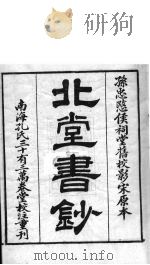 孫忠愍侯祠堂舊校影宋原本
北堂書鈔
南海孔氏三十有三萬卷堂校注重刊
mtoou.info